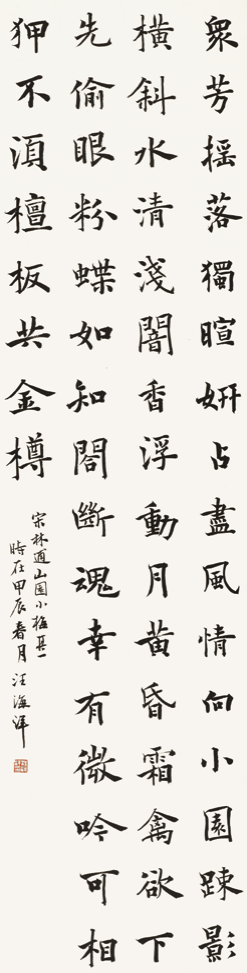 衆芳摇落獨暄妍占盡風情向小園踈影
横斜水清淺闇香浮動月黄昏霜禽欲下
先偷眼粉蝶如知閤斷魂幸有微吟可相
狎不湏檀板共金樽
宋林逋山園小梅其一
時在甲辰春月汪海洋